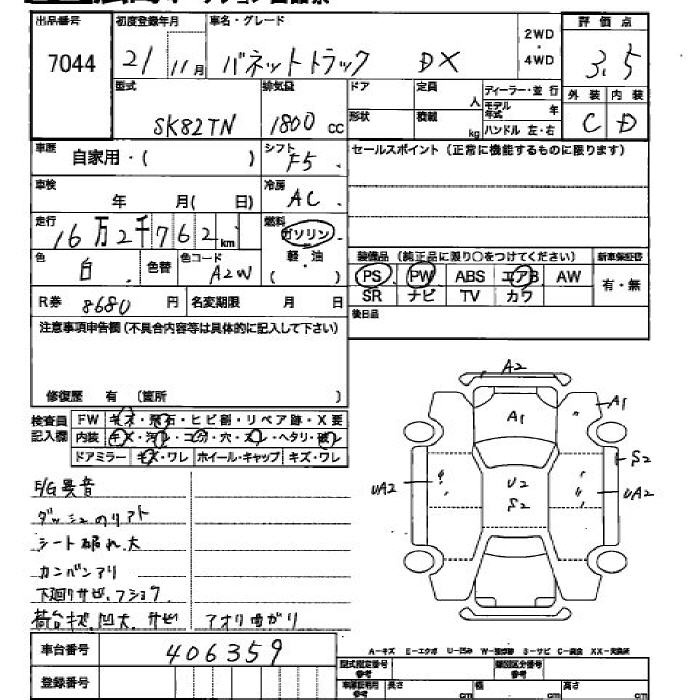 出品番号 初度登録年月 車名・グレード 2WD・4WD 評価点
7044 21 11月 バネットトラック DX 3.5
型式 排気量 ドア 定員 人 ディーラー・並行 外装 内装
SK82TN 1800 cc 形状 積載 kg モデル年式 年 ハンドル 左・右 C D
車歴 自家用・( ) シフト F5 セールスポイント(正常に機能するものに限ります)
車検 年 月( 日) 冷房 AC
走行 16万2千762km 燃料 ガソリン・軽・油 ( )
色 白 色替 色コード A2W
装備品(純正品に限り○をつけてください) 新車保証書
PS PW ABS エアB AW 有・無
SR ナビ TV カワ
R券 8680 円 名変期限 月 日 後日品
注意事項申告欄(不具合内容等は具体的に記入して下さい)
修復歴 有 (箇所 )
検査員記入欄 FW キズ・飛石・ヒビ割・リペア跡・X要
内装 キズ・汚れ・コゲ・穴・スレ・ヘタリ・破れ
ドアミラー キズ・ワレ ホイール・キャップ キズ・ワレ
A2
A1 A1
S2
UA2 U2 UA2
S2
E/G異音
ダッシュのリアト
シート破れ大
カンバンアリ
下廻りサビ、フショク
荷台キズ、凹大、サビ アオリ曲がり
車台番号 406359
A-キズ E-エクボ U-凹み W-波ウチ S-サビ C-腐食 XX-交換済
登録番号
型式指定番号参考 類別区分番号参考
長さ cm 幅 cm 高さ cm